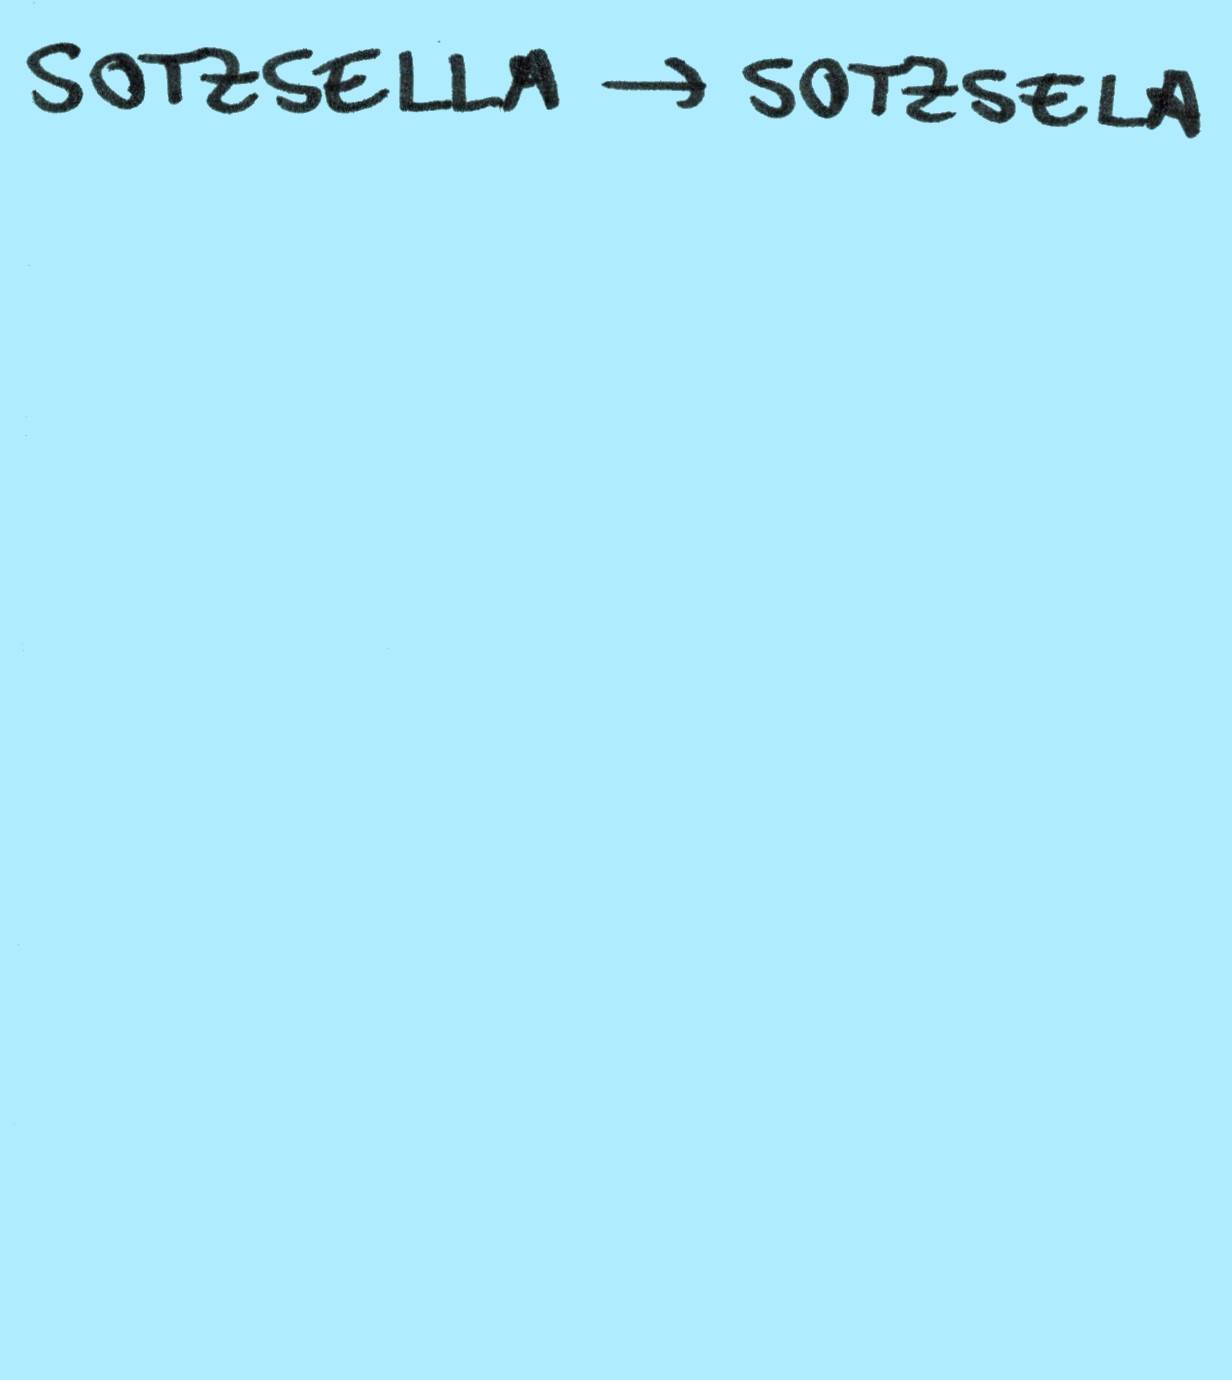 SOTZSELLA → SOTZSELA